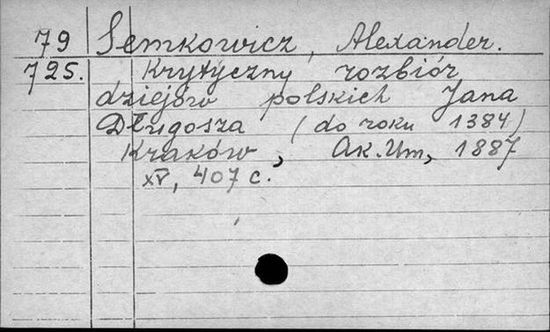 79 Semkowicz, Alexander.
725. Krytyczny rozbiór
dziejów polskich Jana
Długosza (do roku 1384)
Kraków, Ak. Um, 1887
XV, 407 c.